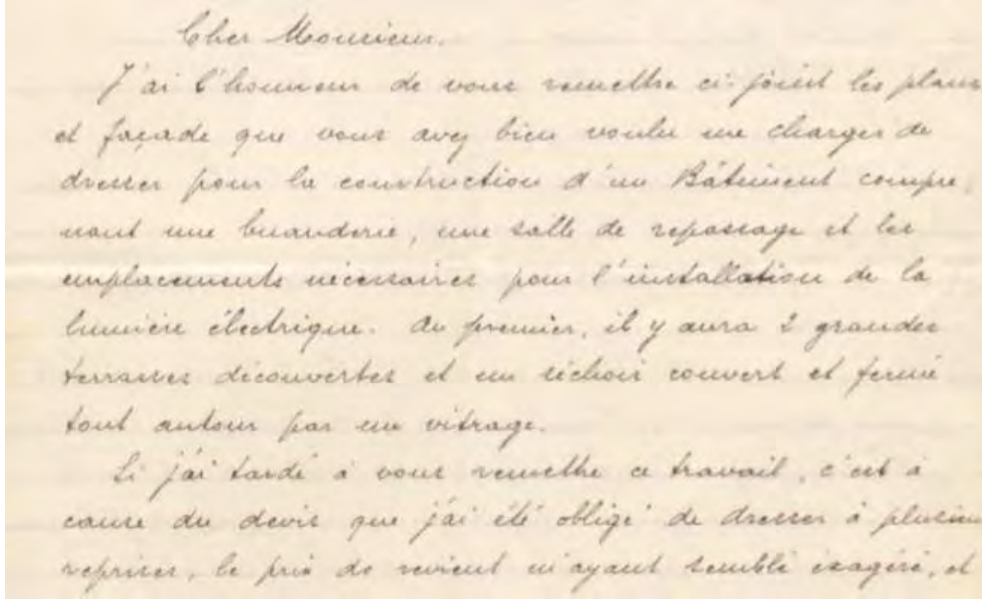 Cher Monsieur.
J'ai l'honneur de vous remettre ci-joint les plans
et façade que vous avez bien voulu me charger de
dresser pour la construction d'un Bâtiment compre,
nant une buanderie, une salle de repassage et les
emplacements nécessaires pour l'installation de la
lumière électrique. Au premier, il y aura 2 grandes
terrasses découvertes et un séchoir couvert et fermé
tout autour par un vitrage.
Si j'ai tardé à vous remettre ce travail, c'est à
cause du devis que j'ai été obligé de dresser à plusieu
reprises, le prix de revient m'ayant semblé exagéré, et